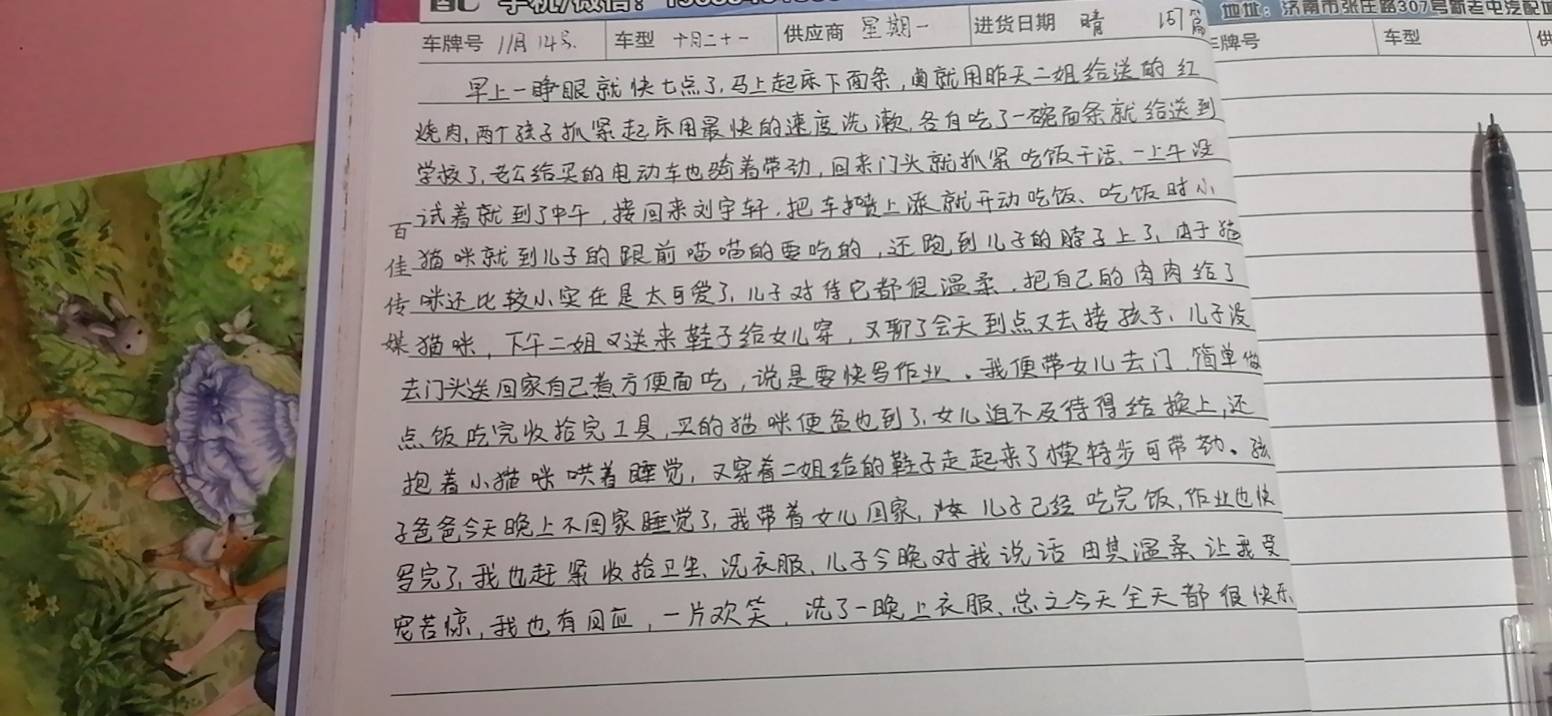 手机/微信:
地址：济南市张庄路307号新老屯汽配城
车牌号 11月14号. 车型 十月二十一 供应商 星期一 进货日期 晴 157篇
车牌号 车型 供
早上一睁眼就快七点了,马上起床下面条,卤就用昨天二姐给送的红
烧肉,两个孩子抓紧起床用最快的速度洗漱,各自吃了一碗面条就给送到
学校了,老公给买的电动车也骑着带劲,回来门头就抓紧吃饭干活、一上午没
试着就到了中午,接回来刘宇轩,把车喷上漆就开动吃饭、吃饭时小
猫咪就到儿子的跟前喵喵的要吃的,还跑到儿子的脖子上了,由于猫
咪还比较小实在是太可爱了,儿子对待它都很温柔,把自己的肉肉给了
猫咪,下午二姐又送来鞋子给女儿穿,又聊了会天到点又去接孩子、儿子没
去门头送回家自己煮方便面吃,说是要快写作业。我便带女儿去门、简单做
点饭吃完收拾完工具,买的猫咪便盆也到了,女儿迫不及待得给换上,还
抱着小猫咪哄着睡觉,又穿着二姐给的鞋子走起来了模特步可带劲。孩
子爸爸今天晚上不回家睡觉了,我带着女儿回家, 儿子已经吃完饭,作业也快
写完了,我也赶紧收拾卫生、洗衣服、儿子今晚对我说话由其温柔、让我受
宠若惊,我也有回应,一片欢笑,洗了一晚上衣服、总之今天全天都很快乐
百佳传媒